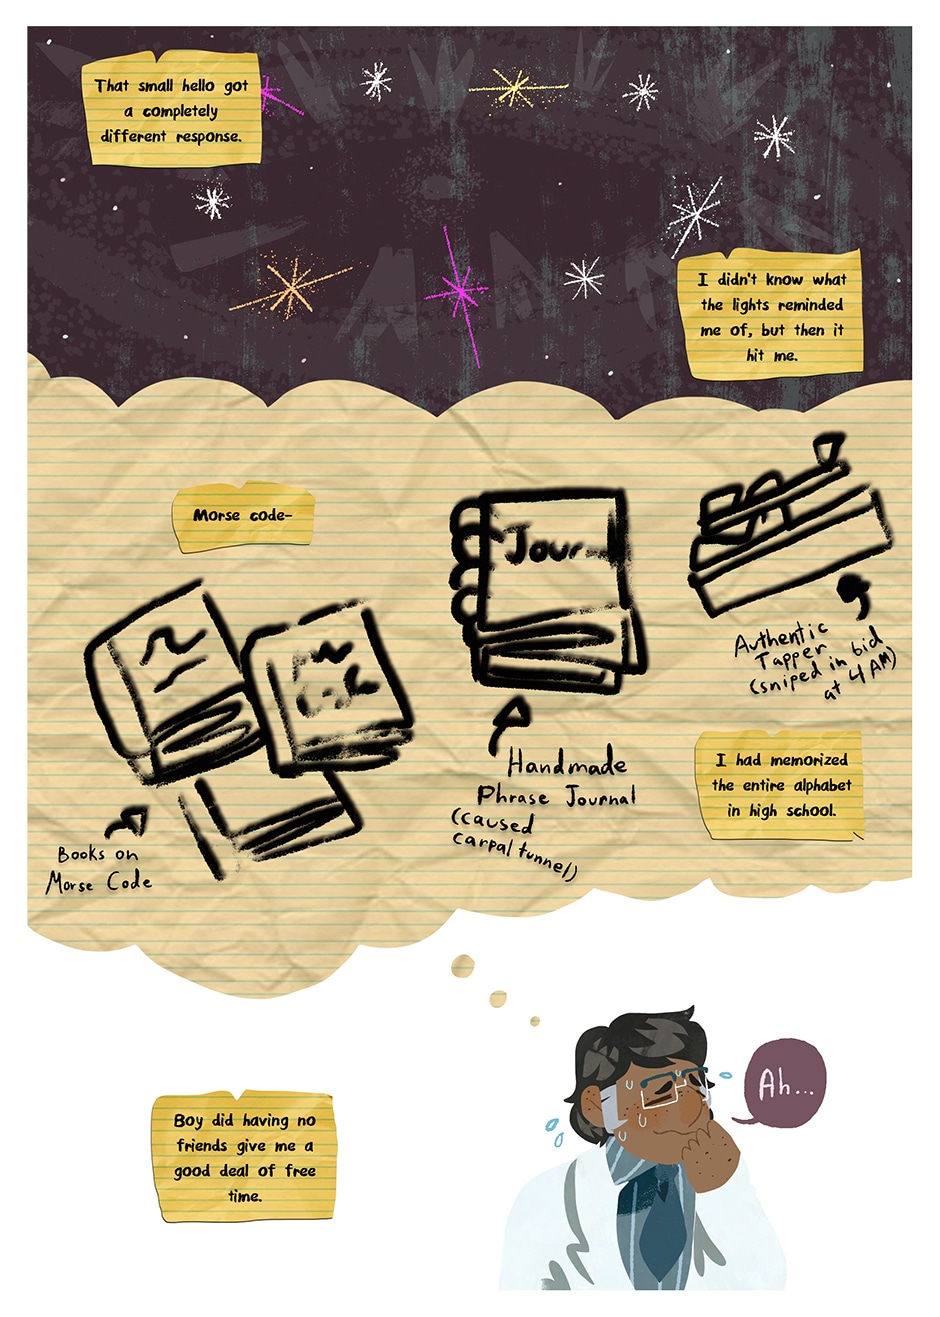 That small hello got
a completely
different response.
I didn't know what
the lights reminded
me of, but then it
hit me.
Morse code-
Jour
Authentic
Tapper
(sniped in bid
at 4 AM)
Handmade
Phrase Journal
(caused
carpal tunnel)
I had memorized
the entire alphabet
in high school.
Books on
Morse Code
Ah...
Boy did having no
friends give me a
good deal of free
time.